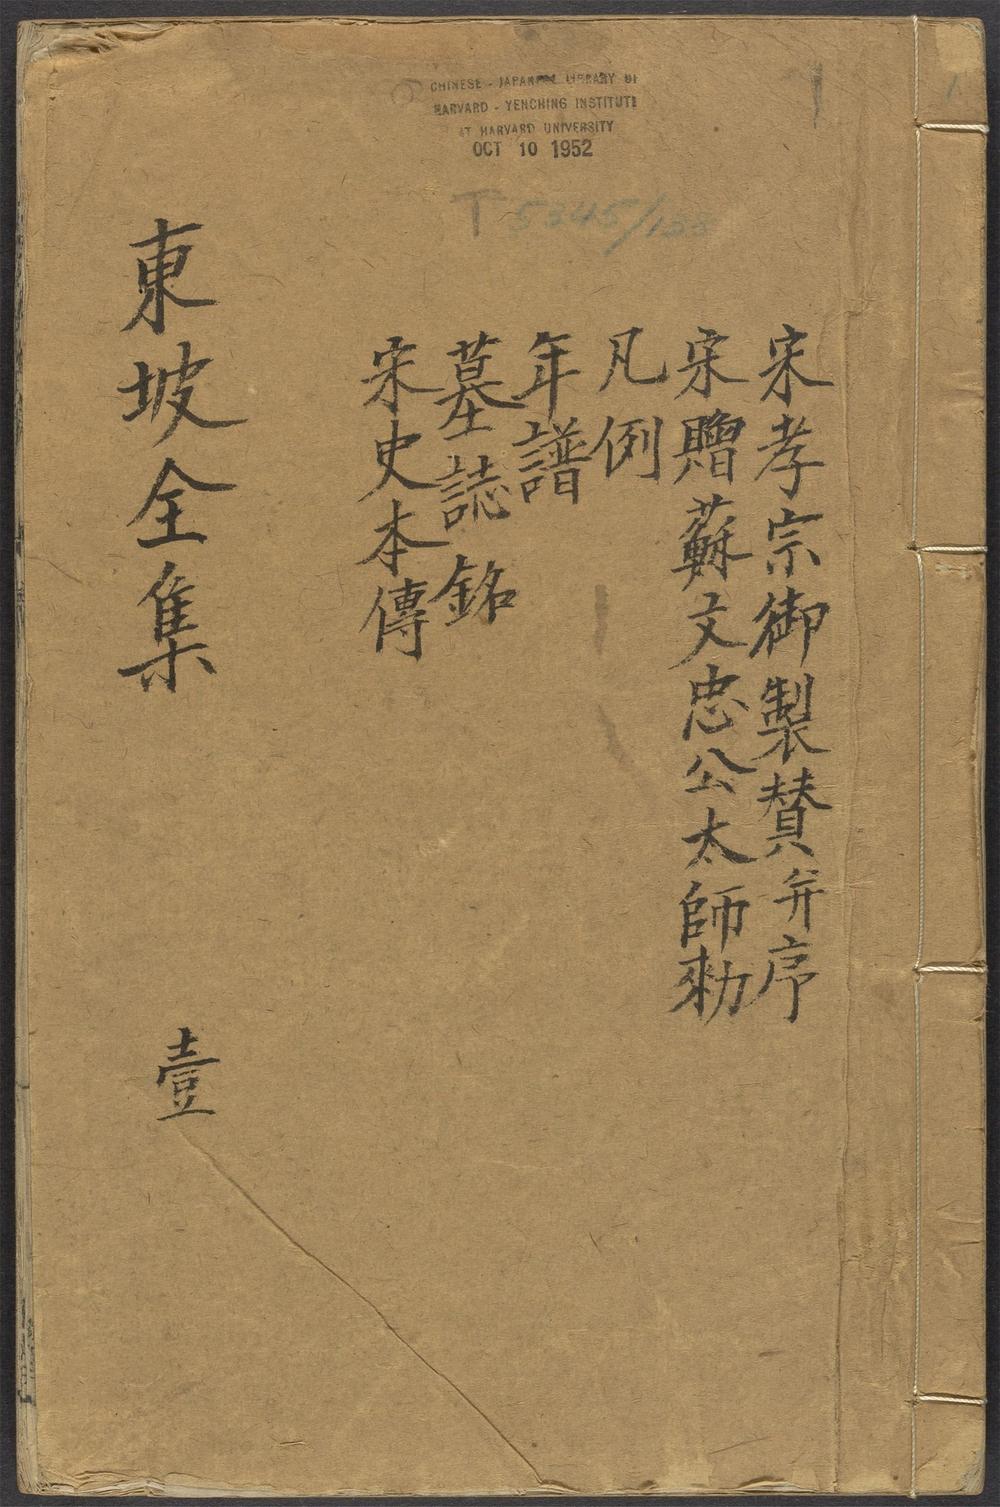 CHINESE - JAPANESE LIBRARY OF
HARVARD - YENCHING INSTITUTE
AT HARVARD UNIVERSITY
OCT 10 1952
T 5345/123
宋孝宗御製賛并序
宋贈蘇文忠公太師勑
凡例
年譜
墓誌銘
宋史本傳
東坡全集
壹